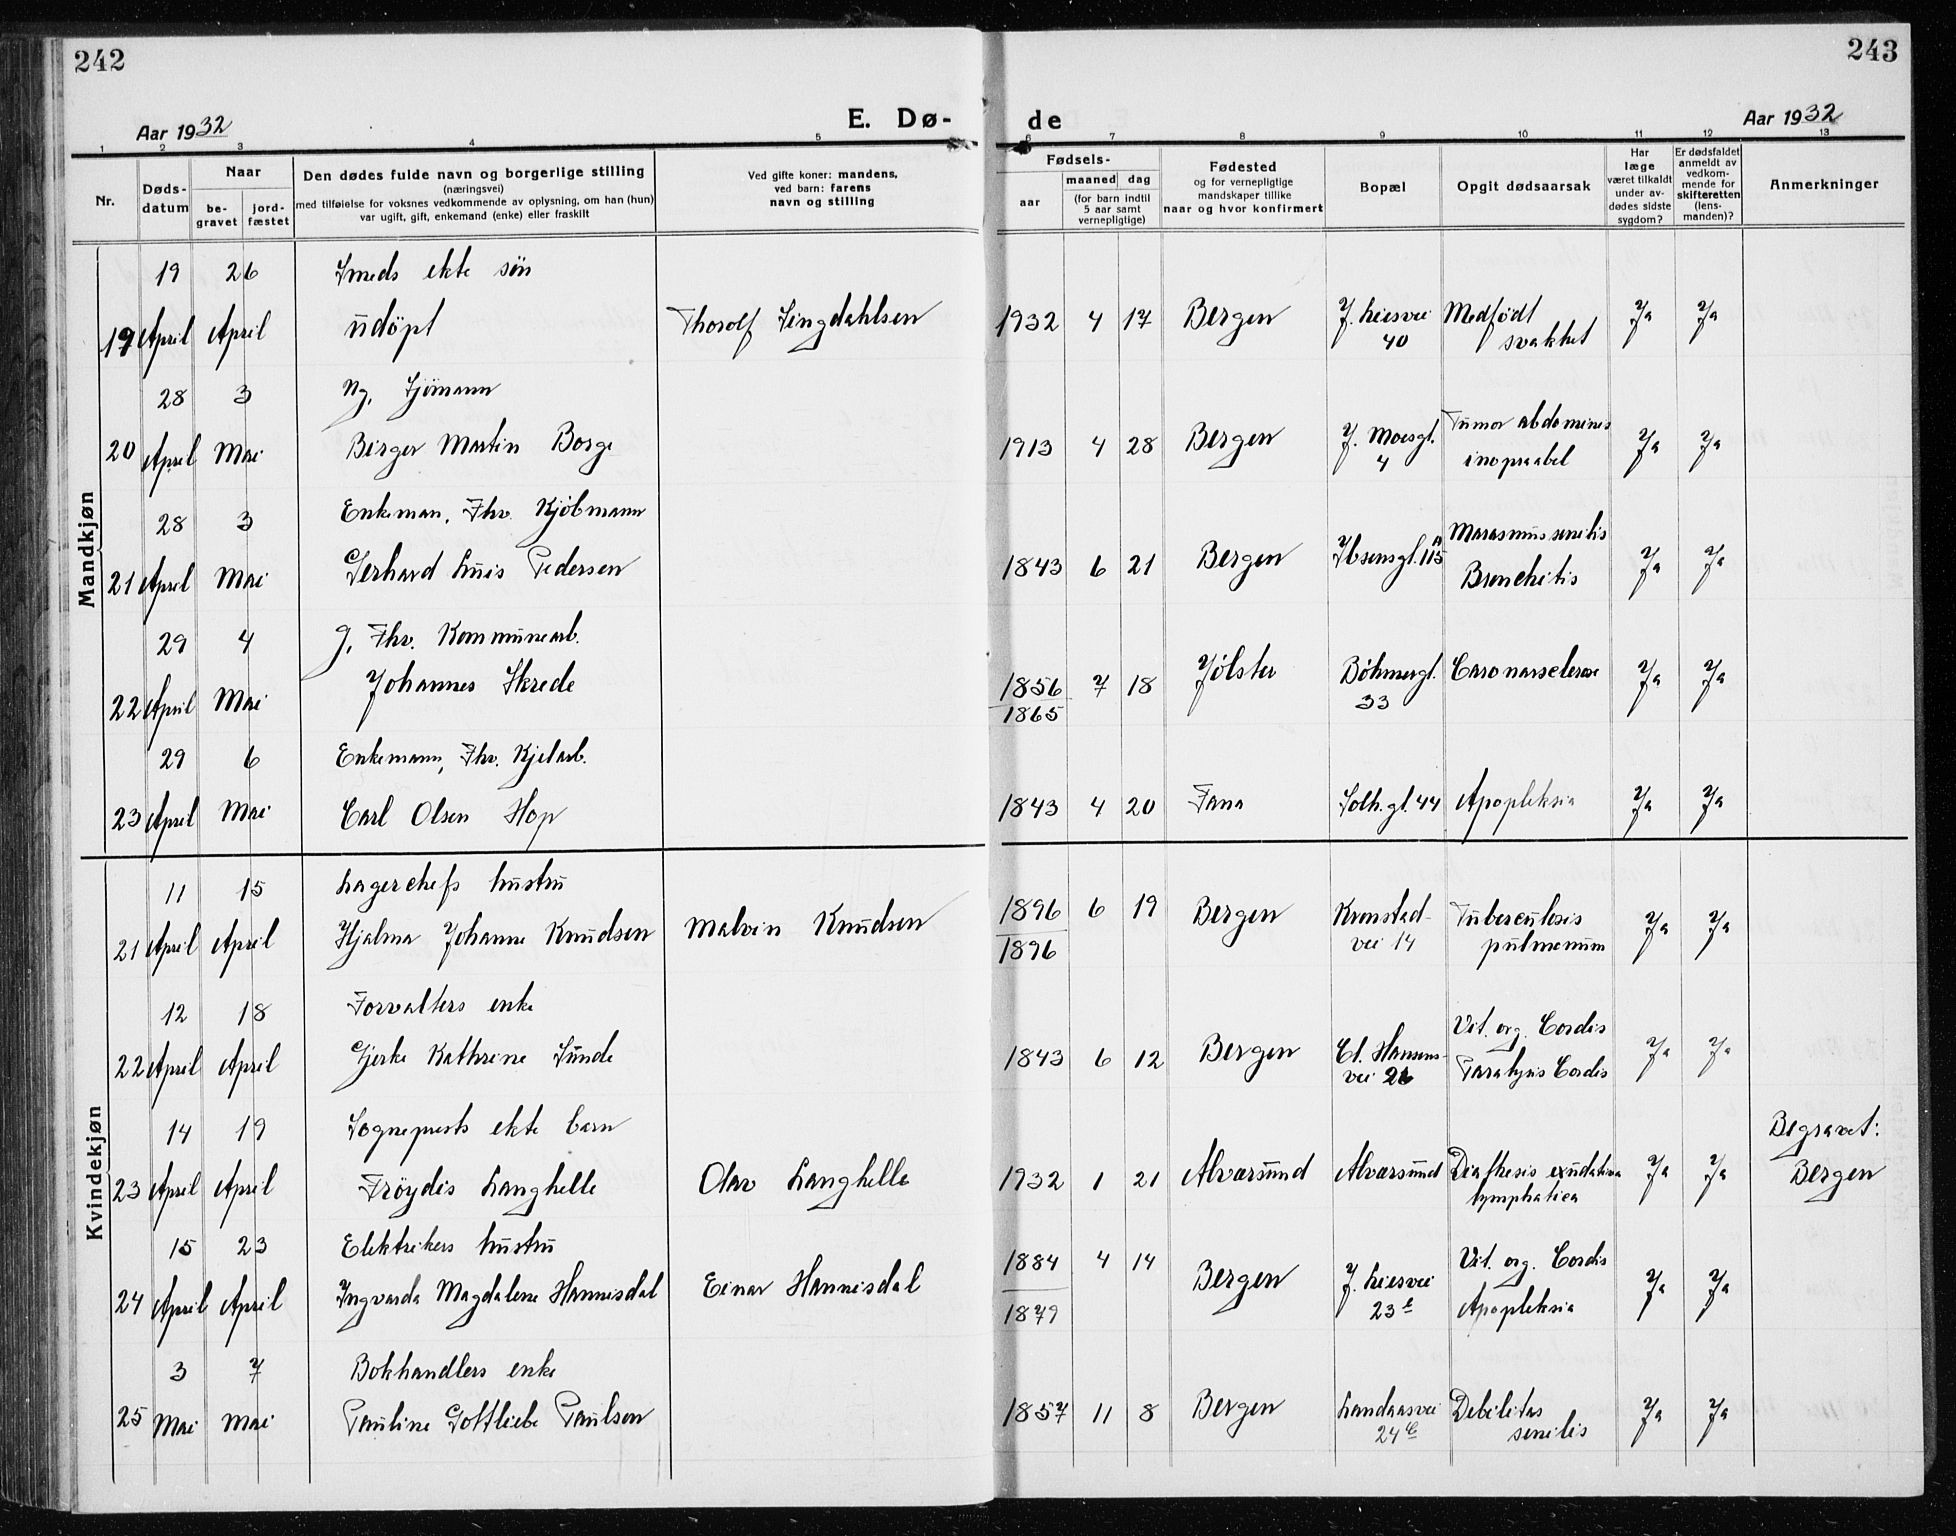 242
243
Aar 1932
E. Dø-
de
Aar 1932
1 2 3 4 5 6 7 8 9 10 11 12 13
Nr.
Døds-
datum
Naar
be-
gravet
jord-
fæstet
Den dødes fulde navn og borgerlige stilling
(næringsvei)
med tilføielse for voksnes vedkommende av oplysning, om han (hun)
var ugift, gift, enkemand (enke) eller fraskilt
Ved gifte koner: mandens,
ved barn: farens
navn og stilling
Fødsels-
aar
maaned dag
(for barn indtil
5 aar samt
vernepligtige)
Fødested
og for vernepligtige
mandskaper tillike
naar og hvor konfirmert
Bopæl
Opgit dødsaarsak
Har
læge
været tilkaldt
under av-
dødes sidste
sygdom?
Er dødsfaldet
anmeldt av
vedkom-
mende for
skifteretten
(lens-
manden)?
Anmerkninger
Mandkjøn
19 26 Smeds ekte søn
19 April April udöpt Thorolf Lingdahlsen 1932 4 17 Bergen J. Liesvei 40 Medfödt svakhet Ja Ja
28 3 Ug. Sjömann
20 April Mai Birger Martin Borge 1913 4 28 Bergen J. Moesgt. 4 Tumor abdominis inoprabel Ja Ja
28 3 Enkeman, Fhv. Kjöbmann
21 April Mai Gerhard Luis Pedersen 1843 6 21 Bergen Ibsensgt. 115 Marasmus senilis Bronchitis Ja Ja
29 4 g, Fhv. Kommunearb.
22 April Mai Johannes Skrede 1856 7 18 Jølster Böhmergt. 33 Ja Ja
1865
29 6 Enkemann, Fhv. Kjelarb.
23 April Mai Carl Olsen Hop 1843 4 20 Fana Solh. gt. 44 Apopleksia Ja Ja
Kvindekjøn
11 15 Lagerchefs hustru
21 April April Hjalma Johanne Knudsen Malvin Knudsen 1896 6 19 Bergen Kronstad- vei 14 Tuberculosis pulmonum Ja Ja
1896
12 18 Forvalters enke
22 April April Gjerke Kathrine Sunde 1843 6 12 Bergen Cl. Hansens- vei 26 Vit. org. Cordis Paralysis Cordis Ja Ja
14 19 Sogneprests ekte barn
23 April April Fröydis Langhelle Olav Langhelle 1932 1 21 Alværsund Alværsund Diathesis exudativa lymphatica Ja Ja Begravet: Bergen
15 23 Elektrikers hustru
24 April April Ingvarda Magdalene Hannisdal Einar Hannisdal 1884 4 14 Bergen J. Liesvei 23 Vit. org. Cordis Apopleksia Ja Ja
1879
3 7 Bokhandlers enke
25 Mai Mai Pauline Gottliebe Paulsen 1857 11 8 Bergen Landaasvei 24 Debilitas senilis Ja Ja